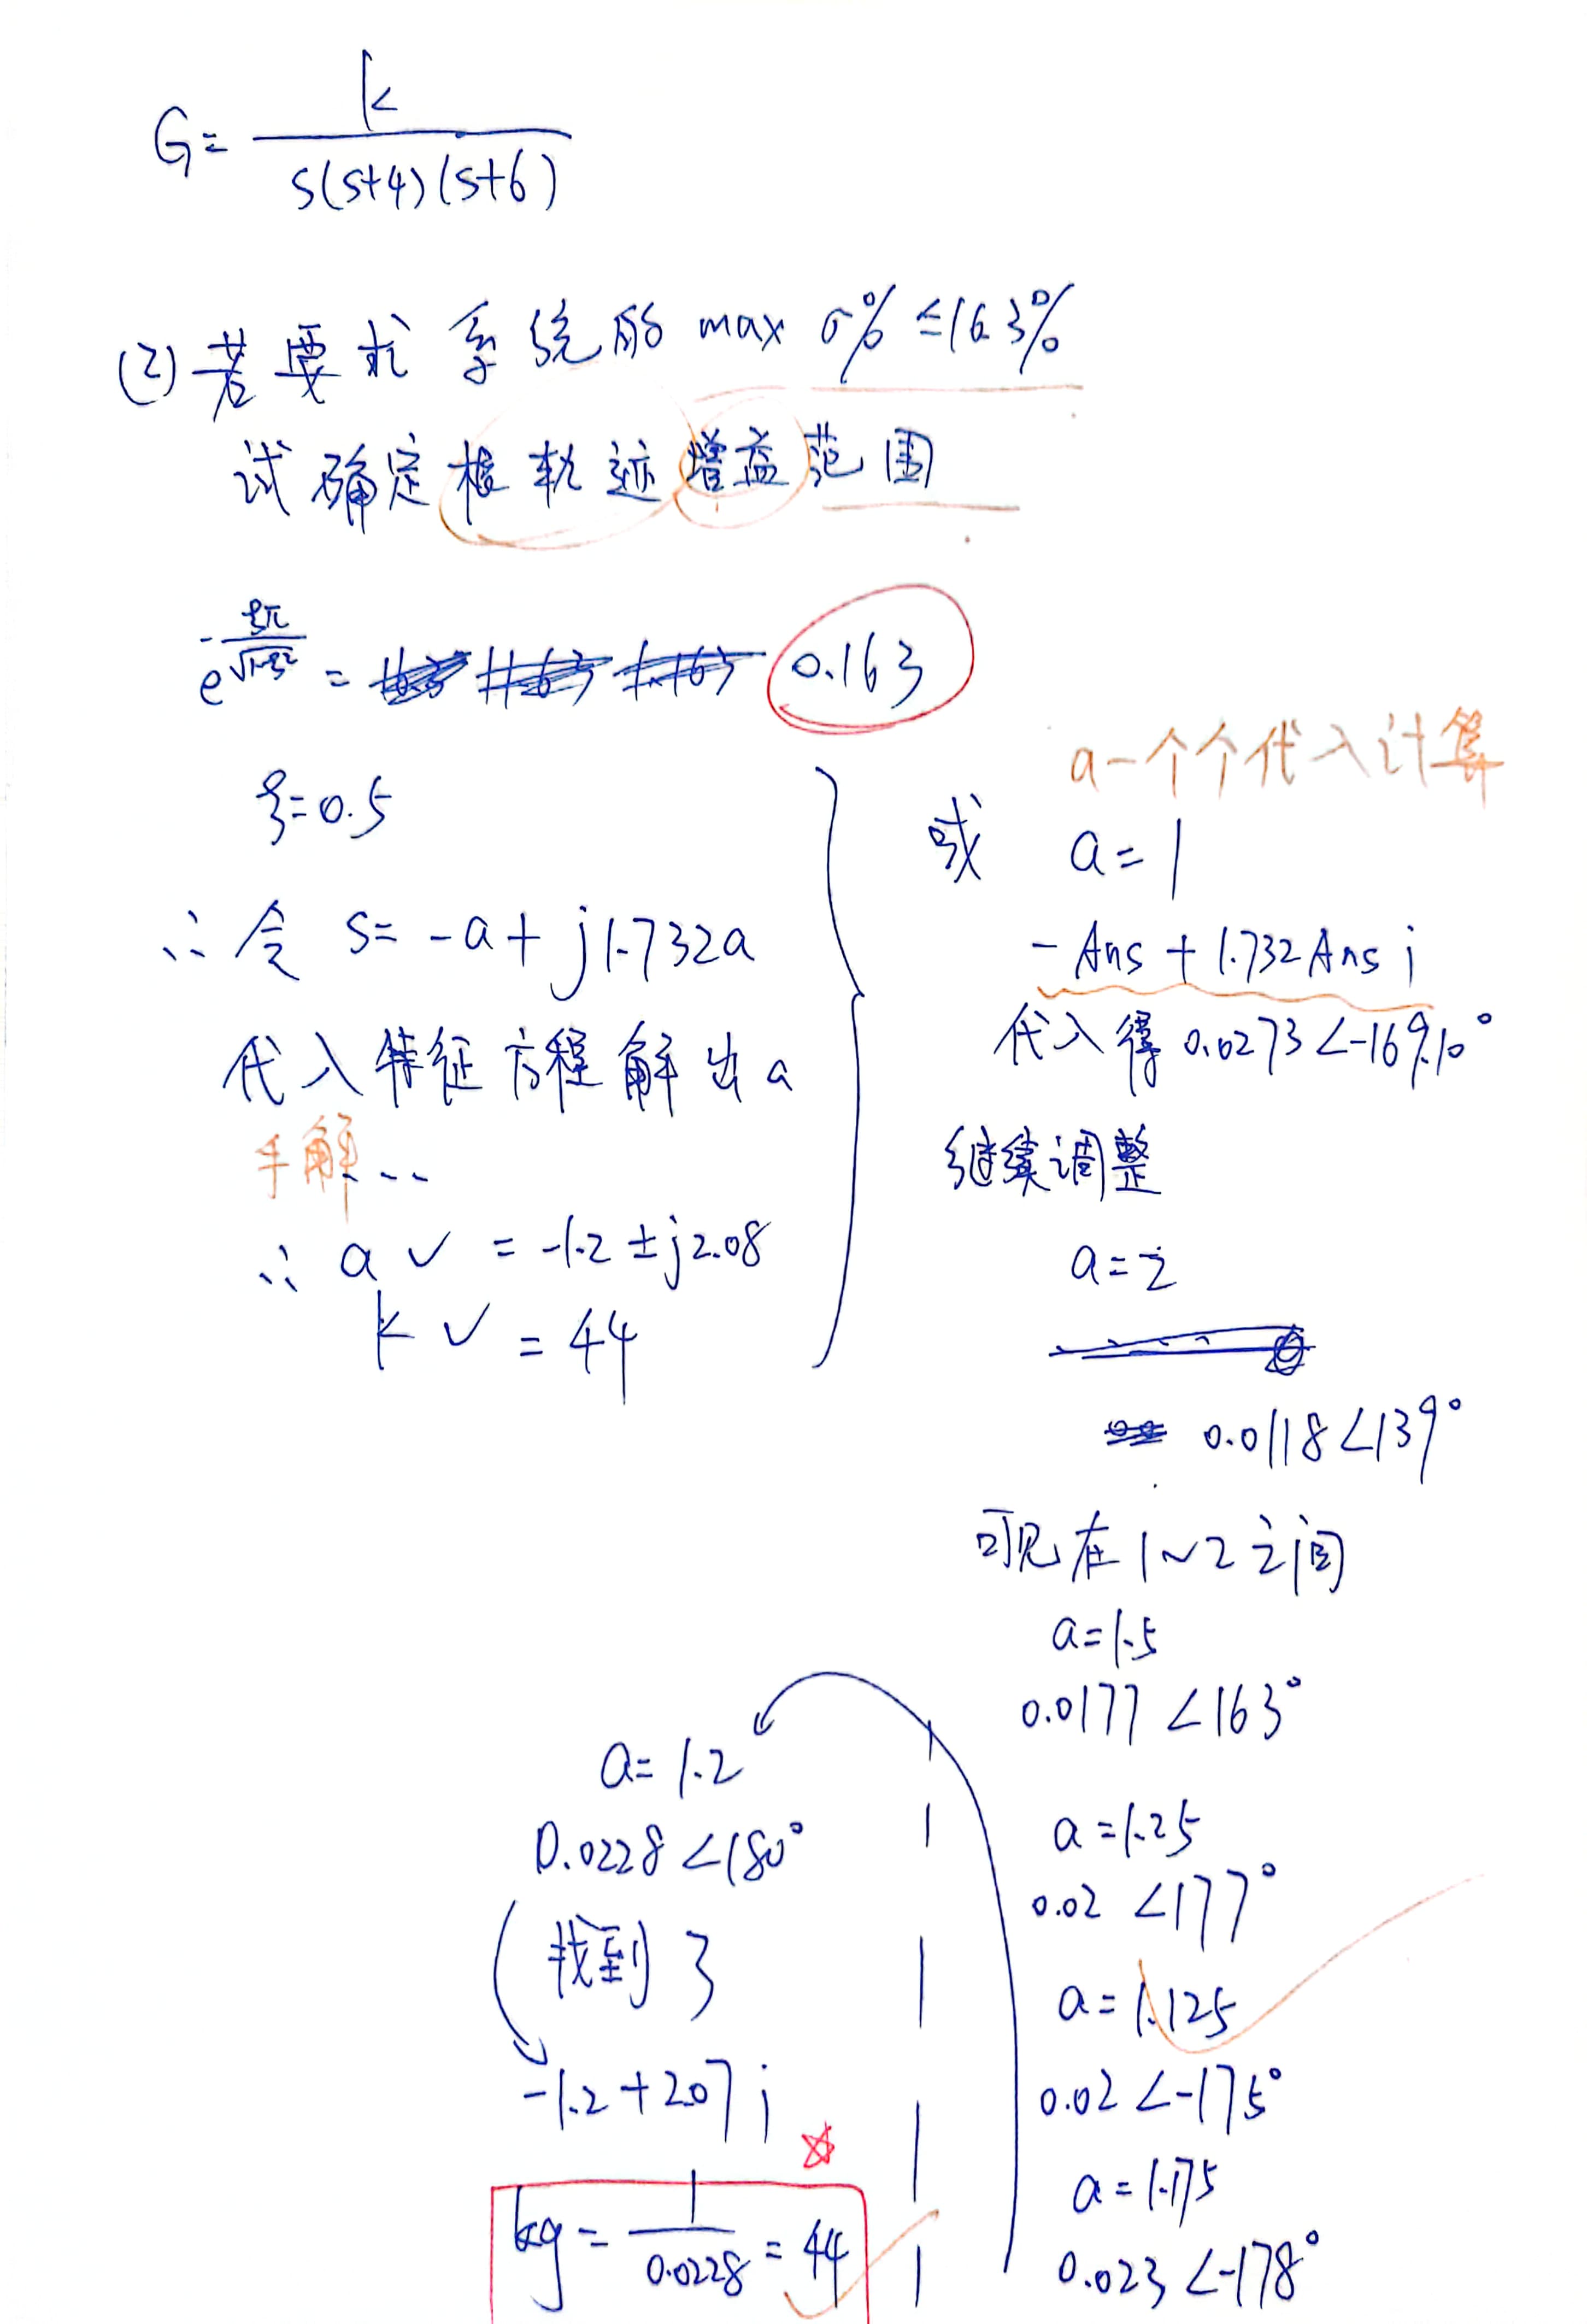 G = k / s(s+4)(s+6)
(2) 若要求系统的 max σ% ≤ 16.3%
试确定根轨迹增益范围
e^(-ξπ/√(1-ξ²)) = 0.163
ξ=0.5
∴ 令 s= -a + j1.732a
代入特征方程解出a
手解...
∴ a ✓ = -1.2 ± j2.08
k ✓ = 44
a一个个代入计算
或 a=1
-Ans + 1.732Ans i
代入得 0.0273∠-169.10°
继续调整
a=2
0.0118∠139°
可见在1~2之间
a=1.5
0.0177∠163°
a=1.25
0.02∠177°
a=1.125
0.02∠-175°
a=1.175
0.023∠-178°
a=1.2
0.0228∠180°
找到了
-1.2+2.07i
kg = 1/0.0228 = 44